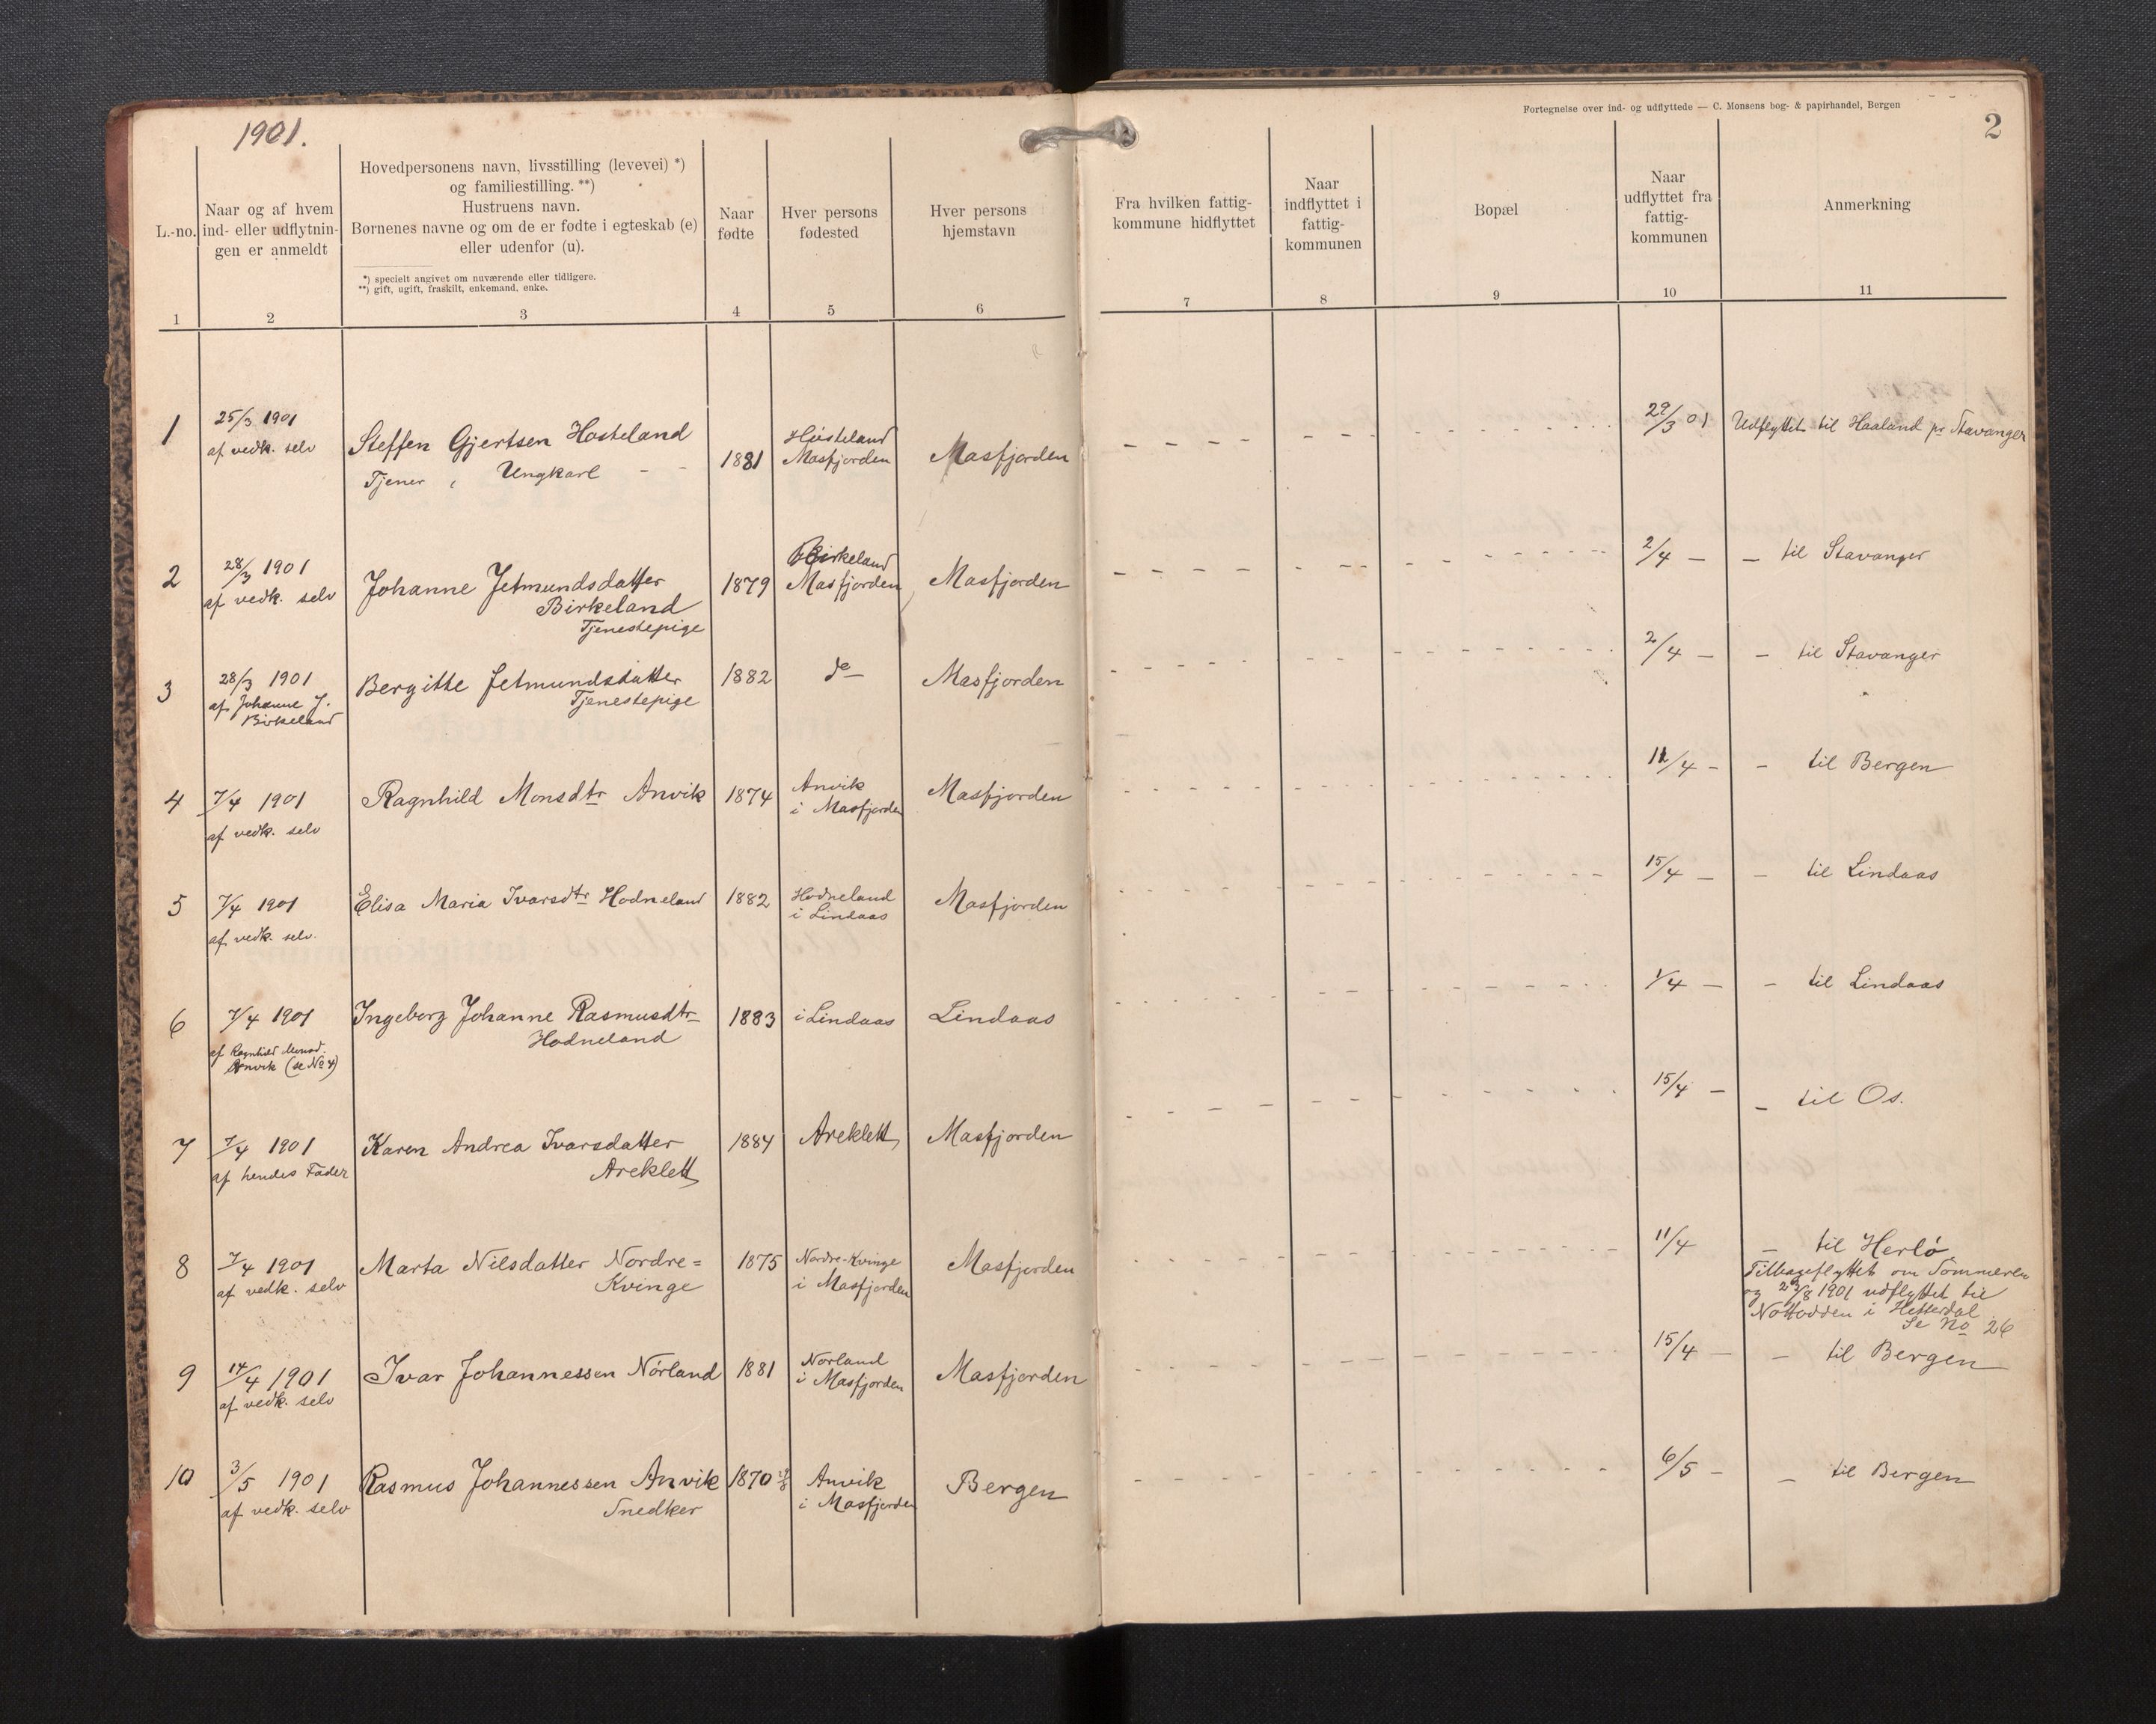 1901.
Fortegnelse over ind- og udflyttede — C. Monsens bog- & papirhandel, Bergen
2
L.-no.
Naar og af hvem
ind- eller udflytnin-
gen er anmeldt
Hovedpersonens navn, livsstilling (levevei) *)
og familiestilling. **)
Hustruens navn.
Børnenes navne og om de er fødte i egteskab (e)
eller udenfor (u).
*) specielt angivet om nuværende eller tidligere.
**) gift, ugift, fraskilt, enkemand, enke.
Naar
fødte
Hver persons
fødested
Hver persons
hjemstavn
Fra hvilken fattig-
kommune hidflyttet
Naar
indflyttet i
fattig-
kommunen
Bopæl
Naar
udflyttet fra
fattig-
kommunen
Anmerkning
1 2 3 4 5 6 7 8 9 10 11
1
25/3 1901
af vedk. selv
Steffen Gjertsen Hosteland
Tjener, Ungkarl - -
1881
Høsteland
Masfjorden
Masfjorden
29/3 01
Udflyttet til Haaland pr Stavanger
2
28/3 1901
af vedk. selv
Johanne Jetmundsdatter
Birkeland
Tjenestepige
1879
Birkeland
Masfjorden
Masfjorden
2/4 —
— til Stavanger
3
28/3 1901
af Johanne J.
Birkeland
Bergitte Jetmundsdatter
Tjenestepige
1882
do
Masfjorden
2/4 —
— til Stavanger
4
7/4 1901
af vedk. selv
Ragnhild Monsdtr Anvik
1874
Anvik
i Masfjorden
Masfjorden
/4 -
- til Bergen
5
7/4 1901
af vedk. selv.
Elisa Maria Ivarsdtr Hodneland
1882
Hodneland
i Lindaas
Masfjorden
15/4 —
- til Lindaas
6
7/4 1901
af Ragnhild Monsd.
Anvik (se No 4)
Ingeborg Johanne Rasmusdtr
Hodneland
1883
i Lindaas
Lindaas
1/4 —
- til Lindaas
7
7/4 1901
af hendes Fader
Karen Andrea Ivarsdatter
Areklett
1884
Areklett
Masfjorden
15/4 —
- til Os.
8
7/4 1901
af vedk. selv
Marta Nilsdatter Nordre=
Kvinge
1875
Nordre-Kvinge
i Masfjorden
Masfjorden
11/4
— til Herlø
Tilbageflyttet om Sommeren
og /8 1901 udflyttet til
Nottodden i Hetterdal
Se No 26
9
14/4 1901
af vedk. selv
Ivar Johannessen Nórland
1881
Nørland
i Masfjorden
Masfjorden
15/4 —
— til Bergen
10
3/5 1901
af vedk. selv
Rasmus Johannessen Anvik
Snedker
1870
Anvik
i Masfjorden
Bergen
6/5 -
- til Bergen